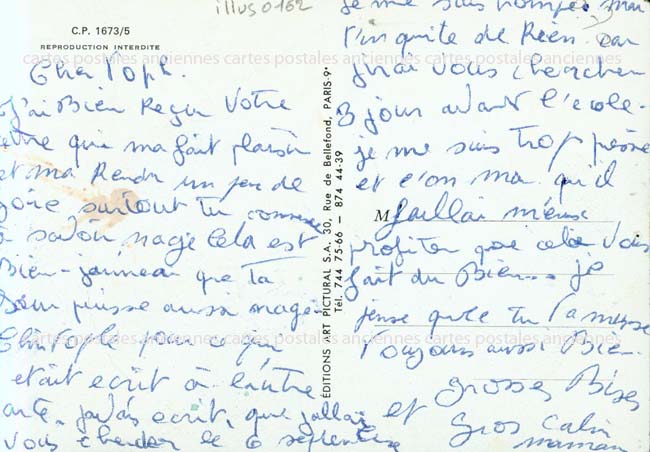 illus0162
C.P. 1673/5
REPRODUCTION INTERDITE
cartes postales anciennes cartes postales anciennes cartes postales anciennes
Cher Toph.
J'ai Bien Reçu Votre
qui ma fait plaisir
et ma Rendu un peu de
surtout tu commence
à savoir nagé Cela est
Bien que Ta
Sœur puisse aussi nagé
pour ce que
était ecrit à l'autre
carte. ecrit, que jallai
Vous chercher le 6 septembre
ÉDITIONS ART PICTURAL S.A. 30, Rue de Bellefond, PARIS-9e
Tél. 744 75-66 — 874 44-39
je me suis trompée
t'inquite de Rien. car
jirai Vous chercher
3 jour avant l'école.
je me suis Trop
et c'on ma qu'il
M
fallai mieux
profiter que cela Vous
fait du Bien... je
pense que tu t'amuse
Toujours aussi Bien.
grosses Bises
et gros calin
maman
cartes postales anciennes cartes postales anciennes cartes postales anciennes